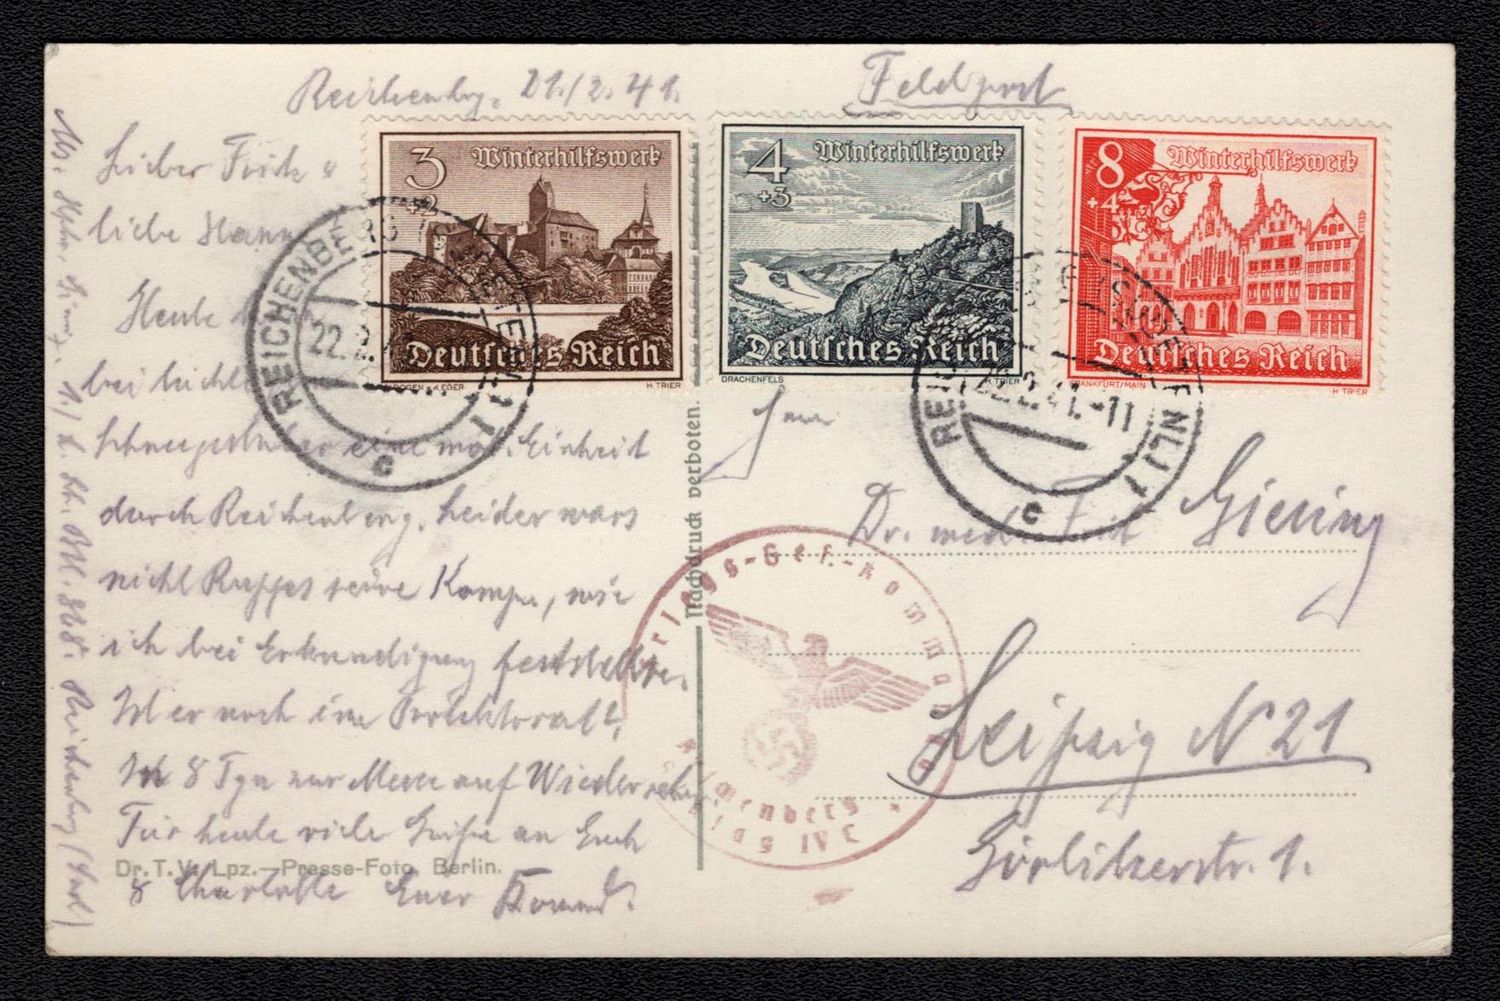 Reichenbg. 21./2.41.
Feldpost
Lieber Fritz &
liebe Hann
Heute
bei
Schneegestöber eine mot. Einheit
durch Reichenberg. Leider wars
nicht Ruppes seine Komp., wie
ich bei Erkundigung feststellte.
Ist er noch im Protektorat?
In 8 Tgn zur Messe auf Wiedersehn.
Für heute viele Grüße an Euch
& Charlotte Euer Konrad.
Dr. T. V. Lpz.—Presse-Foto, Berlin.
Reichenberg (Sud.)
3
+2
Winterhilfswerk
Deutsches Reich
BOGEN a.d. EGER
H. TRIER
4
+3
Winterhilfswerk
Deutsches Reich
DRACHENFELS
H. TRIER
8
+4
Winterhilfswerk
Deutsches Reich
FRANKFURT/MAIN
H TRIER
REICHENBERG
22.2.4
c
22.2.41.-11
c
Nachdruck verboten.
Herrn
Dr. med. Fritz Giesing
Leipzig N 21
Görlitzerstr. 1.
Kriegs-Gef.-Kommando
Stalag IV C